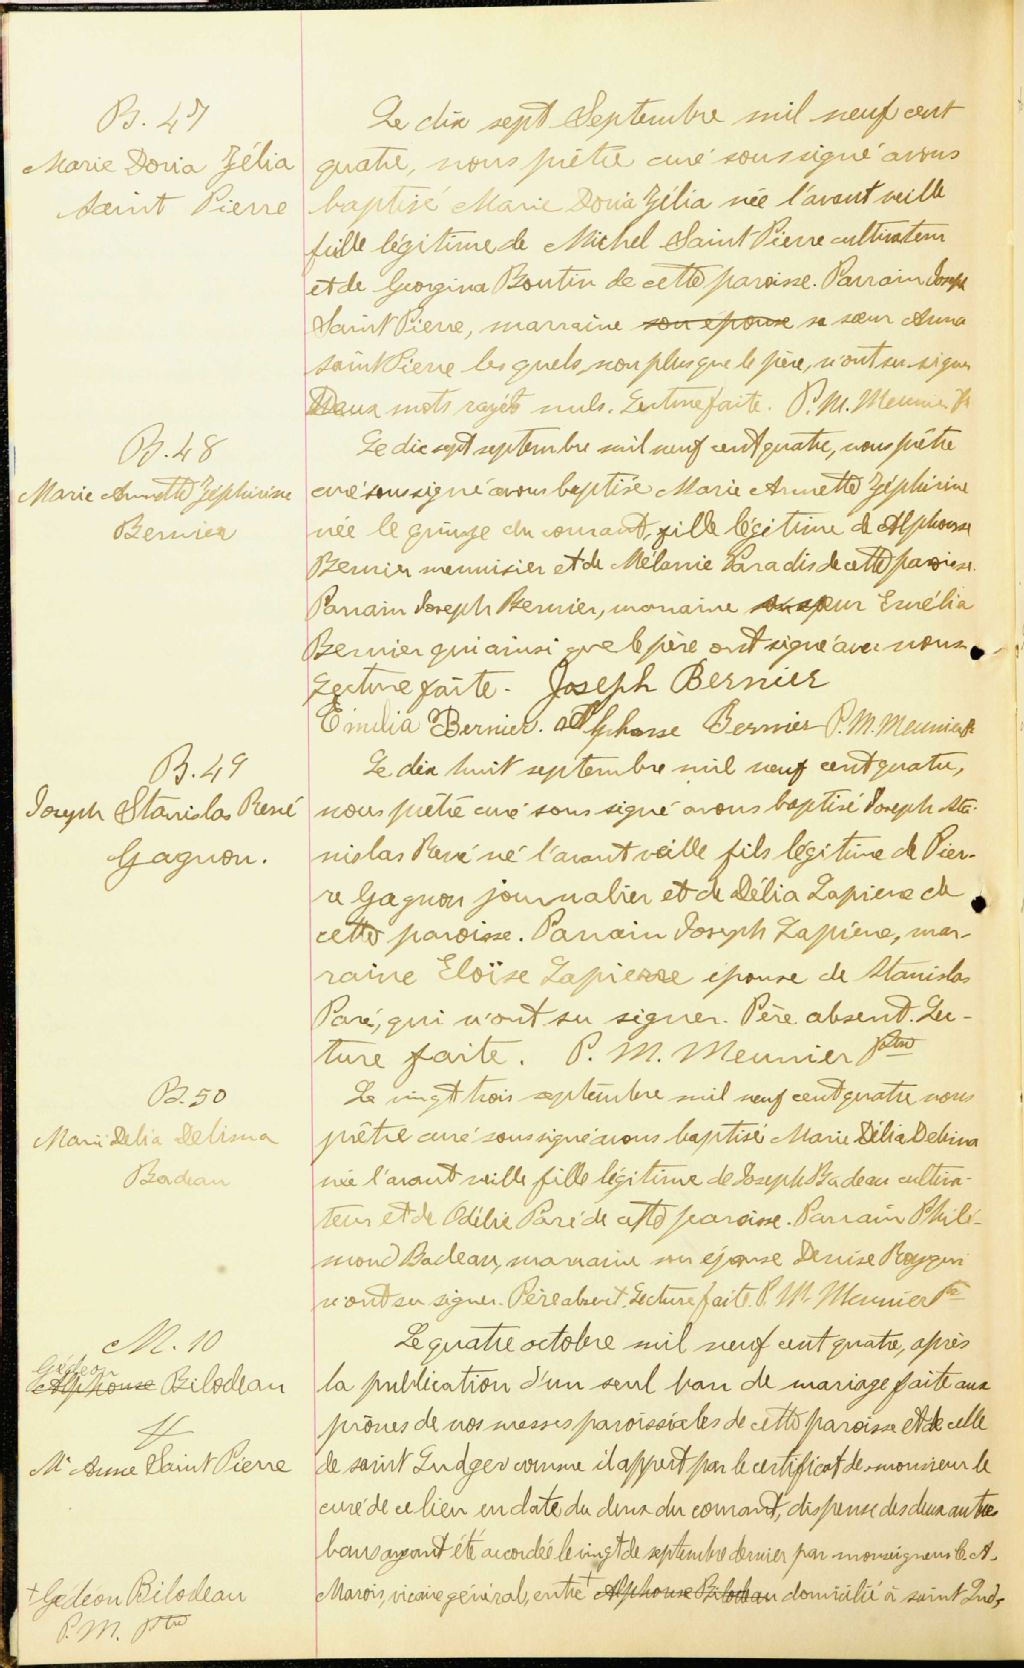 B. 47
Marie Doria Zélia
Saint Pierre
Le dix sept Septembre mil neuf cent
quatre, nous prêtre curé soussigné avons
baptisé Marie Doria Zélia née l'avant veille
fille légitime de Michel Saint Pierre cultivateur
et de Georgina Boutin de cette paroisse. Parrain Joseph
Saint Pierre, marraine son épouse sa sœur Anna
Saint Pierre les quels, non plus que le père, n'ont su signer
Deux mots rayés nuls. Lecture faite. P. M. Meunier Ptr
B. 48
Marie Annette Zéphirine
Bernier
Le dix sept septembre mil neuf cent quatre, nous prêtre
curé soussigné avons baptisé Marie Annette Zéphirine
née le quinze du courant, fille légitime de Alphonse
Bernier menuisier et de Mélanie Paradis de cette paroisse.
Parrain Joseph Bernier, marraine sœur Emélia
Bernier qui ainsi que le père ont signé avec nous.
Lecture faite. Joseph Bernier
Emilia Bernier. Alphonse Bernier P. M. Meunier Ptr
B. 49
Joseph Stanislas René
Gagnon.
Le dix huit septembre mil neuf cent quatre,
nous prêtre curé sous signé avons baptisé Joseph Sta-
nislas René né l'avant veille fils légitime de Pier-
re Gagnon journalier et de Délia Lapierre de
cette paroisse. Parrain Joseph Lapierre, mar-
raine Eloïse Lapierre épouse de Stanislas
Paré, qui n'ont su signer. Père absent. Lec-
ture faite. P. M. Meunier Ptre
B. 50
Marie Délia Délima
Badeau
Le vingt trois septembre mil neuf cent quatre nous
prêtre curé soussigné avons baptisé Marie Délia Delima
née l'avant veille fille légitime de Joseph Badeau cultiva-
teur et de Odélie Paré de cette paroisse. Parrain Philé-
mond Badeau, marraine son épouse Denise Roy qui
n'ont su signer. Père absent. Lecture faite. P. M. Meunier Ptre
M. 10
Gédéon
Alphonse Bilodeau
&
Mie Anne Saint Pierre
Le quatre octobre mil neuf cent quatre, après
la publication d'un seul ban de mariage faite aux
prônes de nos messes paroissiales de cette paroisse et de celle
de saint Ludger comme il appert par le certificat de monsieur le
curé de ce lieu en date du deux du courant, dispense des deux autres
bans ayant été accordée le vingt de septembre dernier par monseigneur C. A.
Marois, vicaire général, entre + Alphonse Bilodeau domicilié à saint Lud-
+ Gédéon Bilodeau
P. M. Ptre